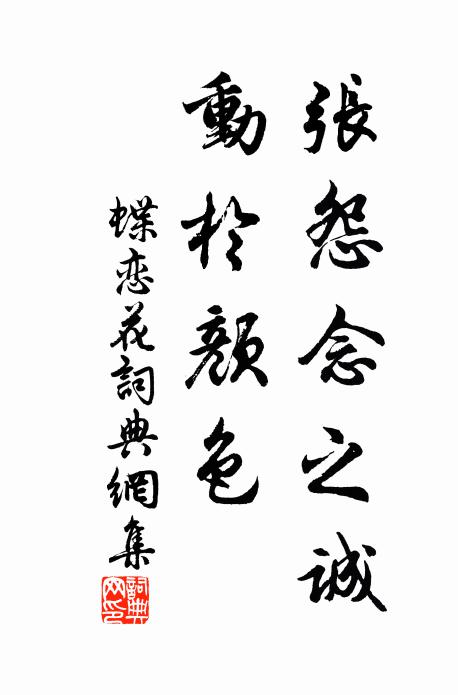 張怨念之誠
動於顏色
蝶恋花詞典網集
詞典网印